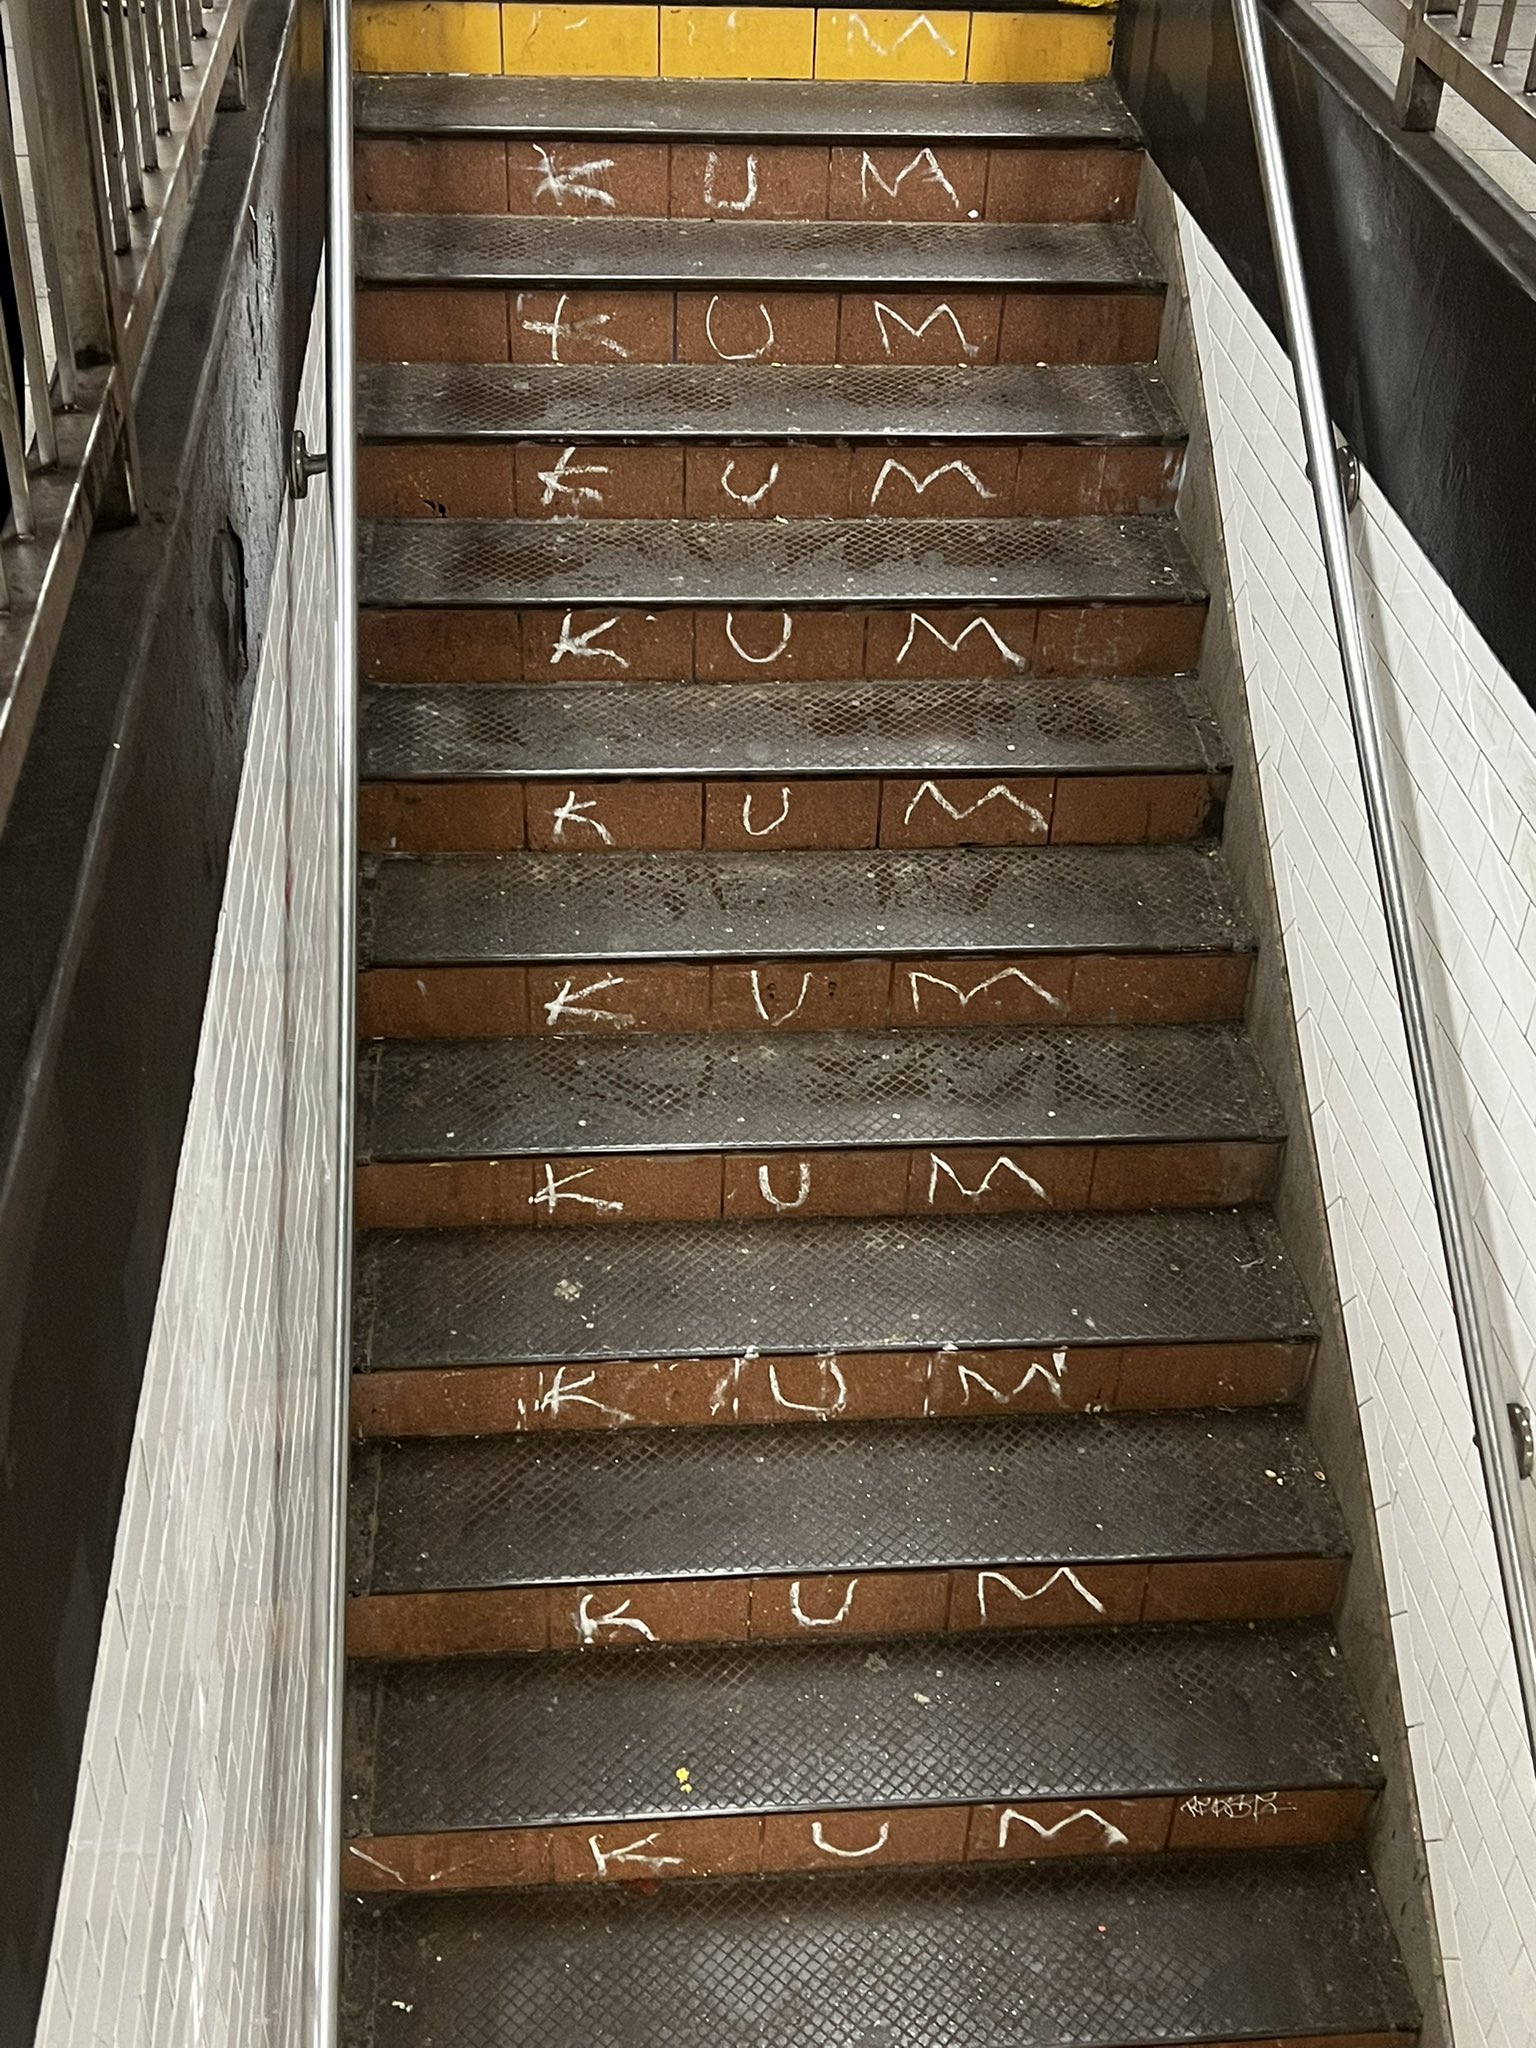 M
KUM
KUM
KUM
KUM
KUM
KUM
KUM
KUM
KUM
KUM